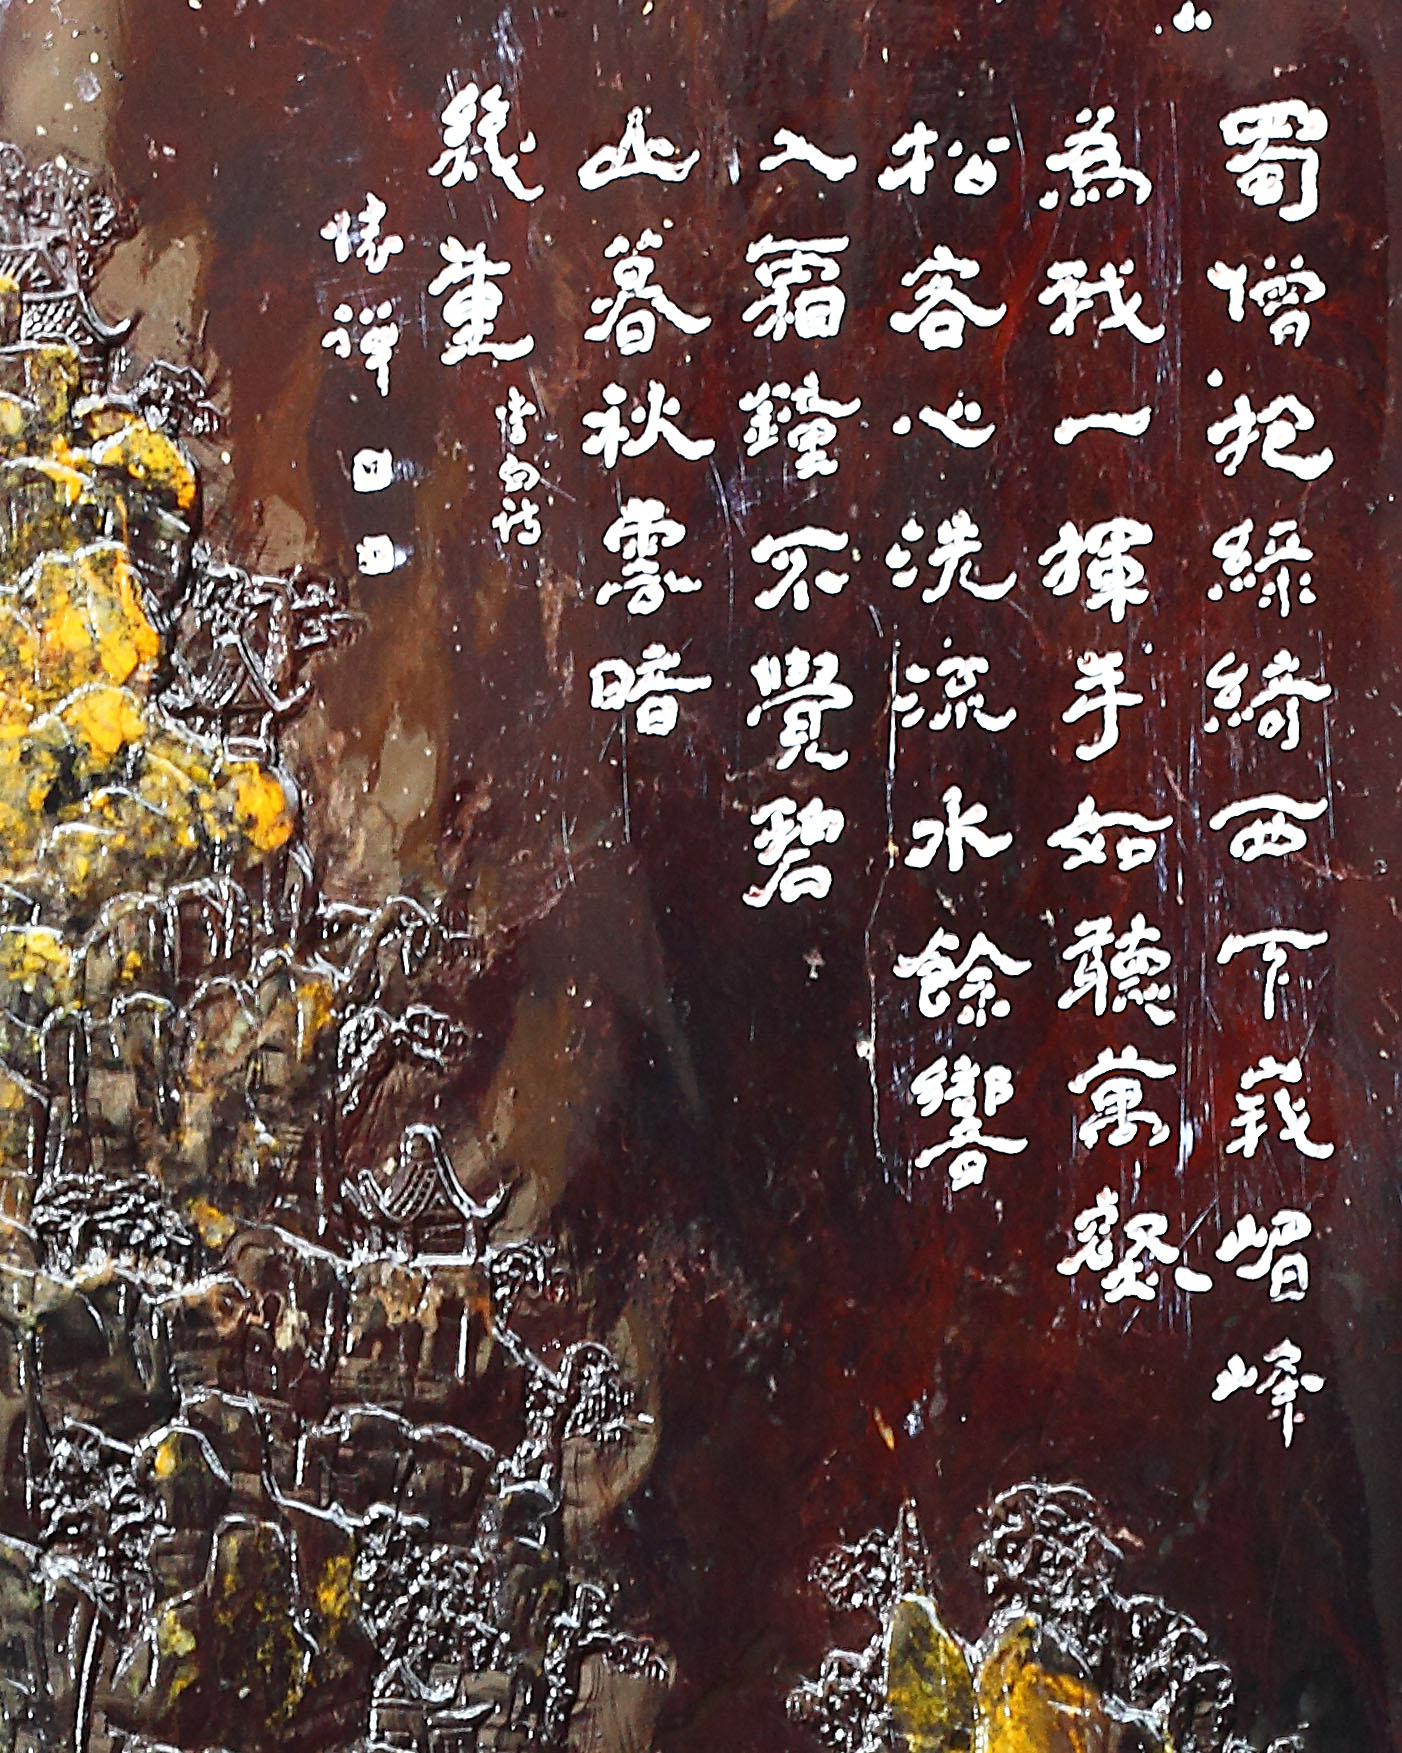 蜀僧抱綠綺西下峩嵋峰
為我一揮手如聽萬壑
松客心洗流水餘響
入霜鐘不覺碧
山暮秋雲暗
幾重
李白詩
懷禪